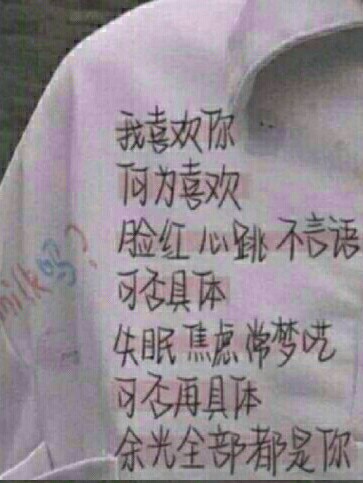 我喜欢你
何为喜欢
脸红心跳不言语
可否具体
失眠焦虑常梦呓
可否再具体
余光全部都是你
milk吗？